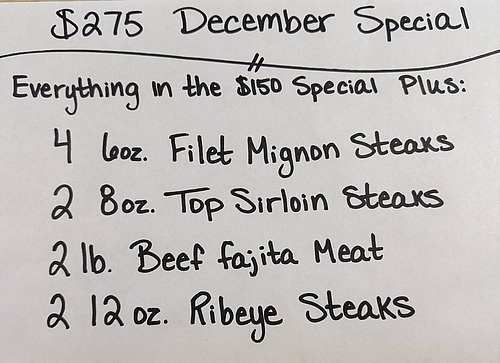 $275 December Special
Everything in the $150 Special Plus:
4 6oz. Filet Mignon Steaks
2 8oz. Top Sirloin Steaks
2 lb. Beef fajita Meat
2 12 oz. Ribeye Steaks